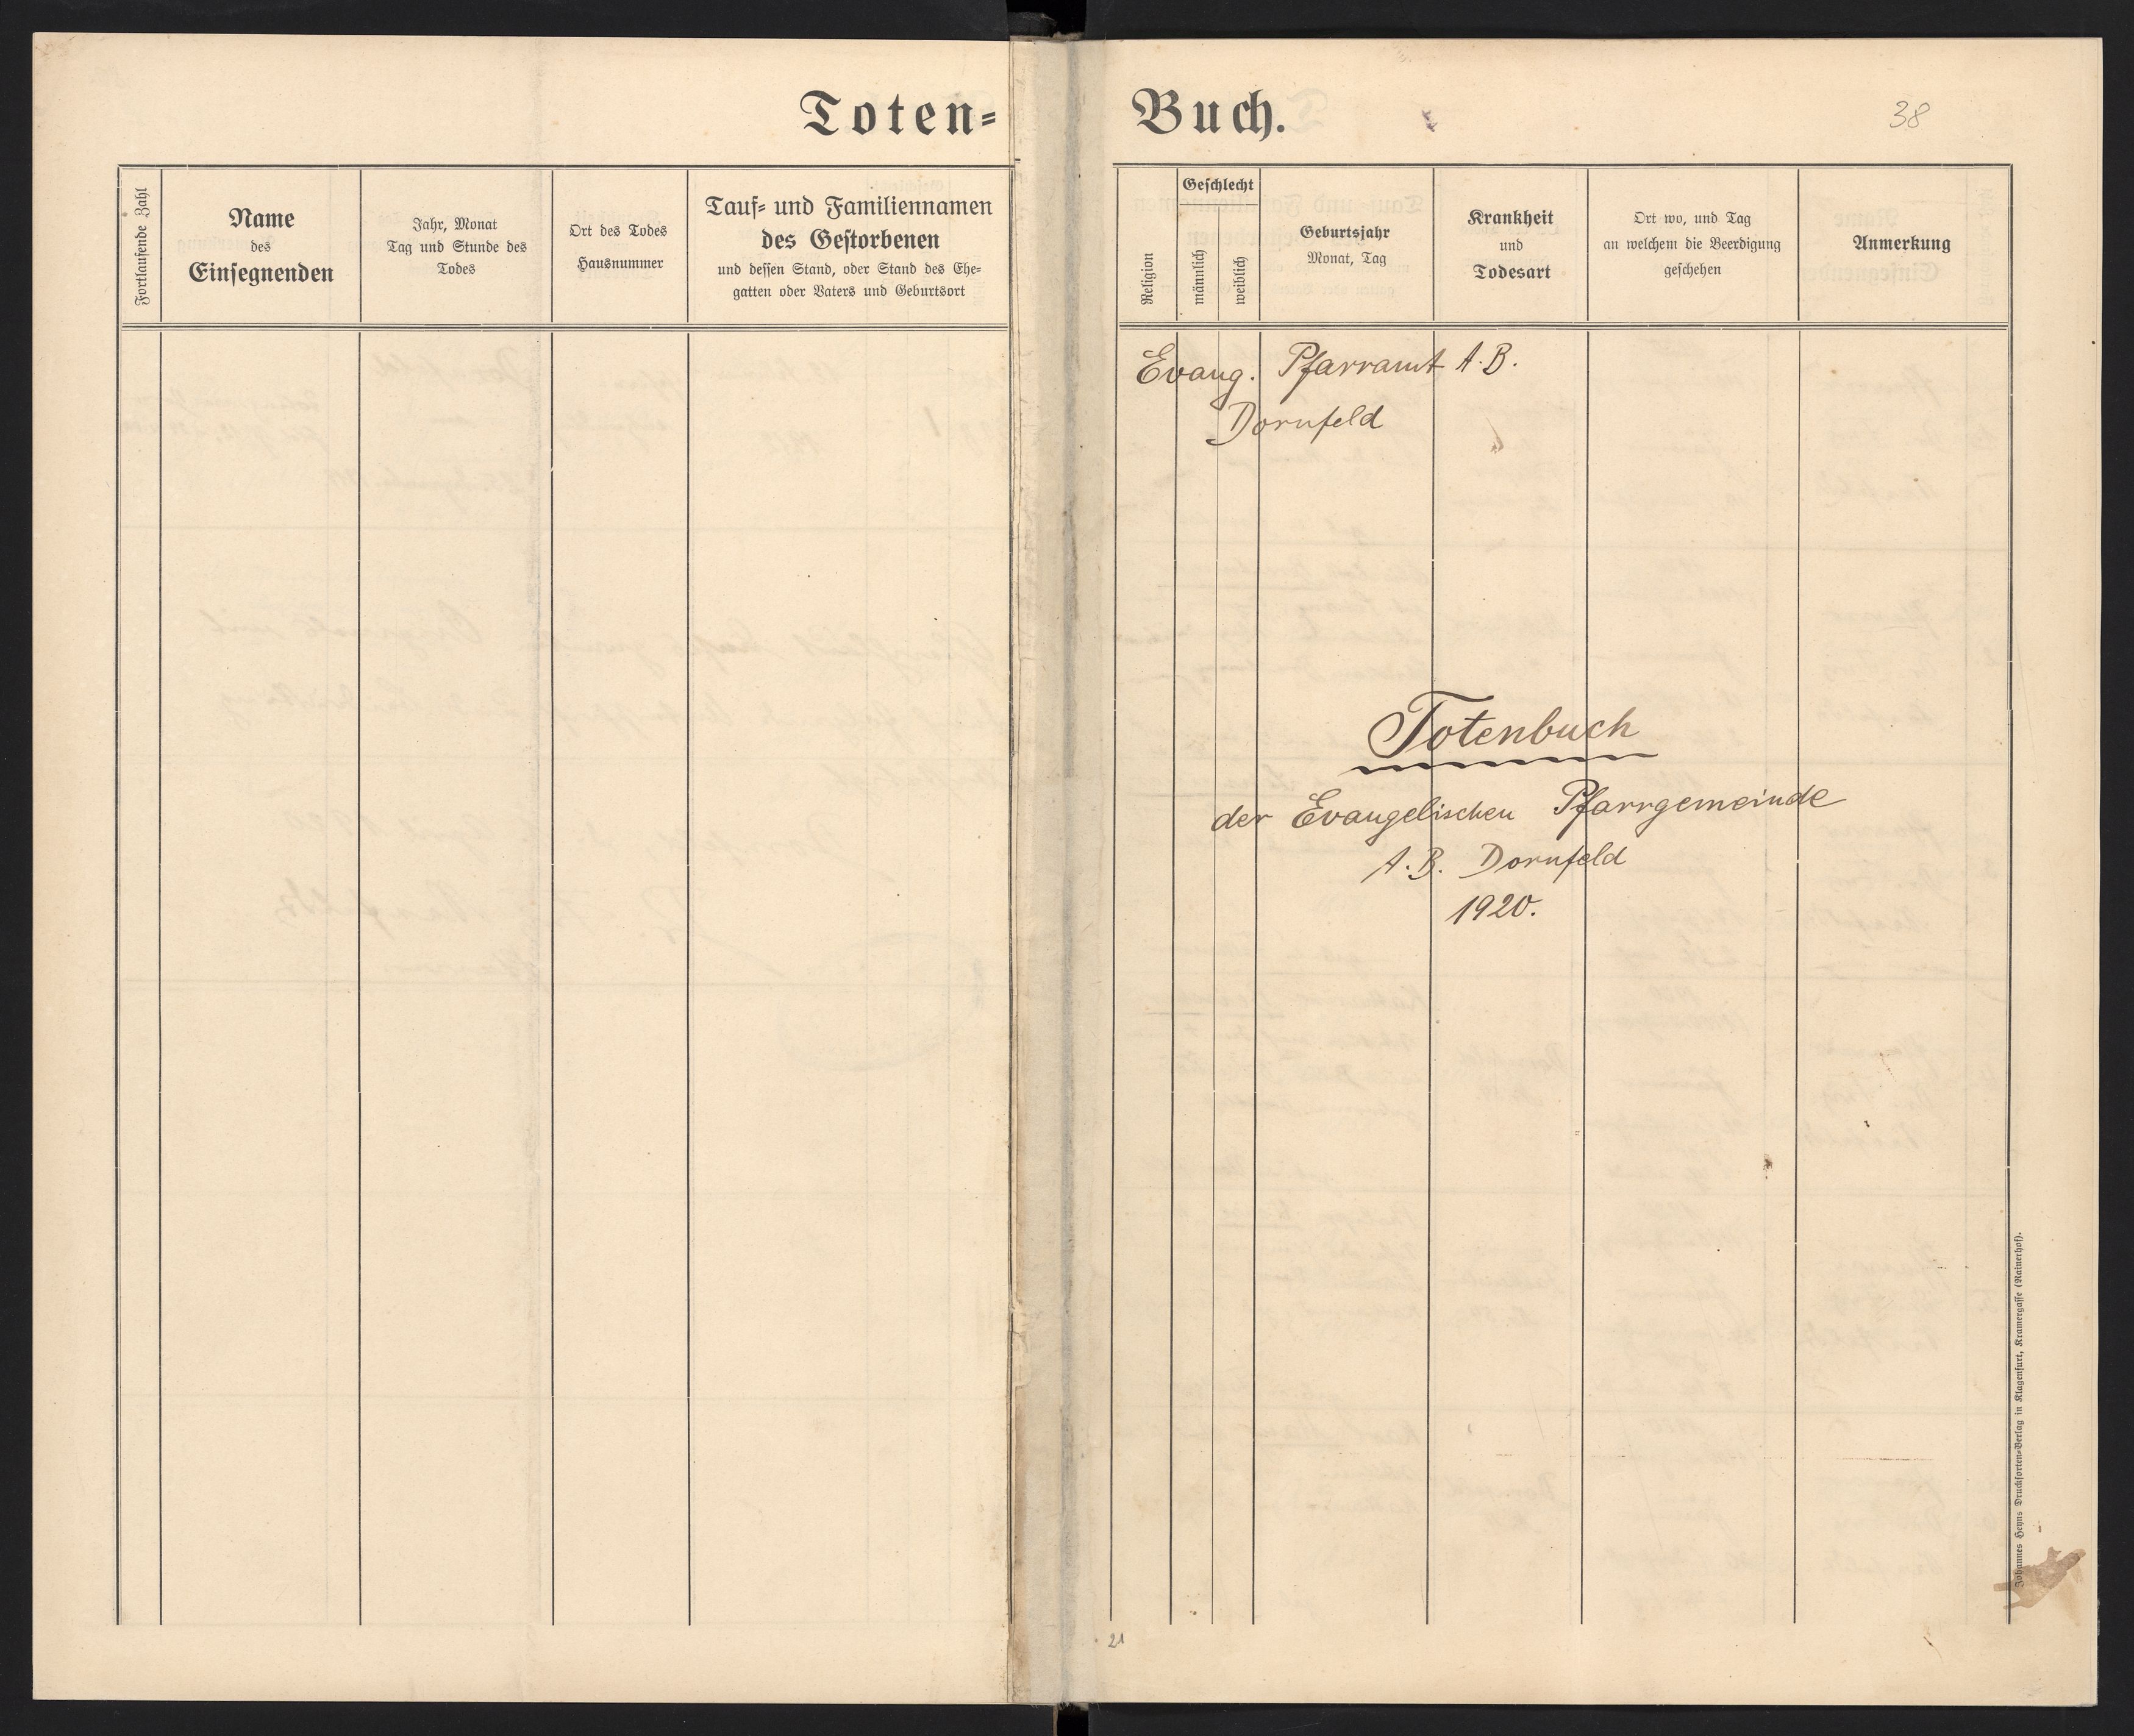 Toten=
Fortlaufende Zahl
Name
des
Einsegnenden
Jahr, Monat
Tag und Stunde des
Todes
Ort des Todes
Hausnummer
Tauf= und Familiennamen
des Gestorbenen
und dessen Stand, oder Stand des Ehe=
gatten oder Vaters und Geburtsort
Buch.
38
Religion
Geschlecht
männlich
weiblich
Geburtsjahr
Monat, Tag
Krankheit
und
Todesart
Ort wo, und Tag
an welchem die Beerdigung
geschehen
Anmerkung
Evang. Pfarramt A.B.
Dornfeld
Totenbuch
der Evangelischen Pfarrgemeinde
A.B. Dornfeld
1920.
Johannes Heyns Drucksorten=Verlag in Klagenfurt, Kramergasse (Rainerhof).
21